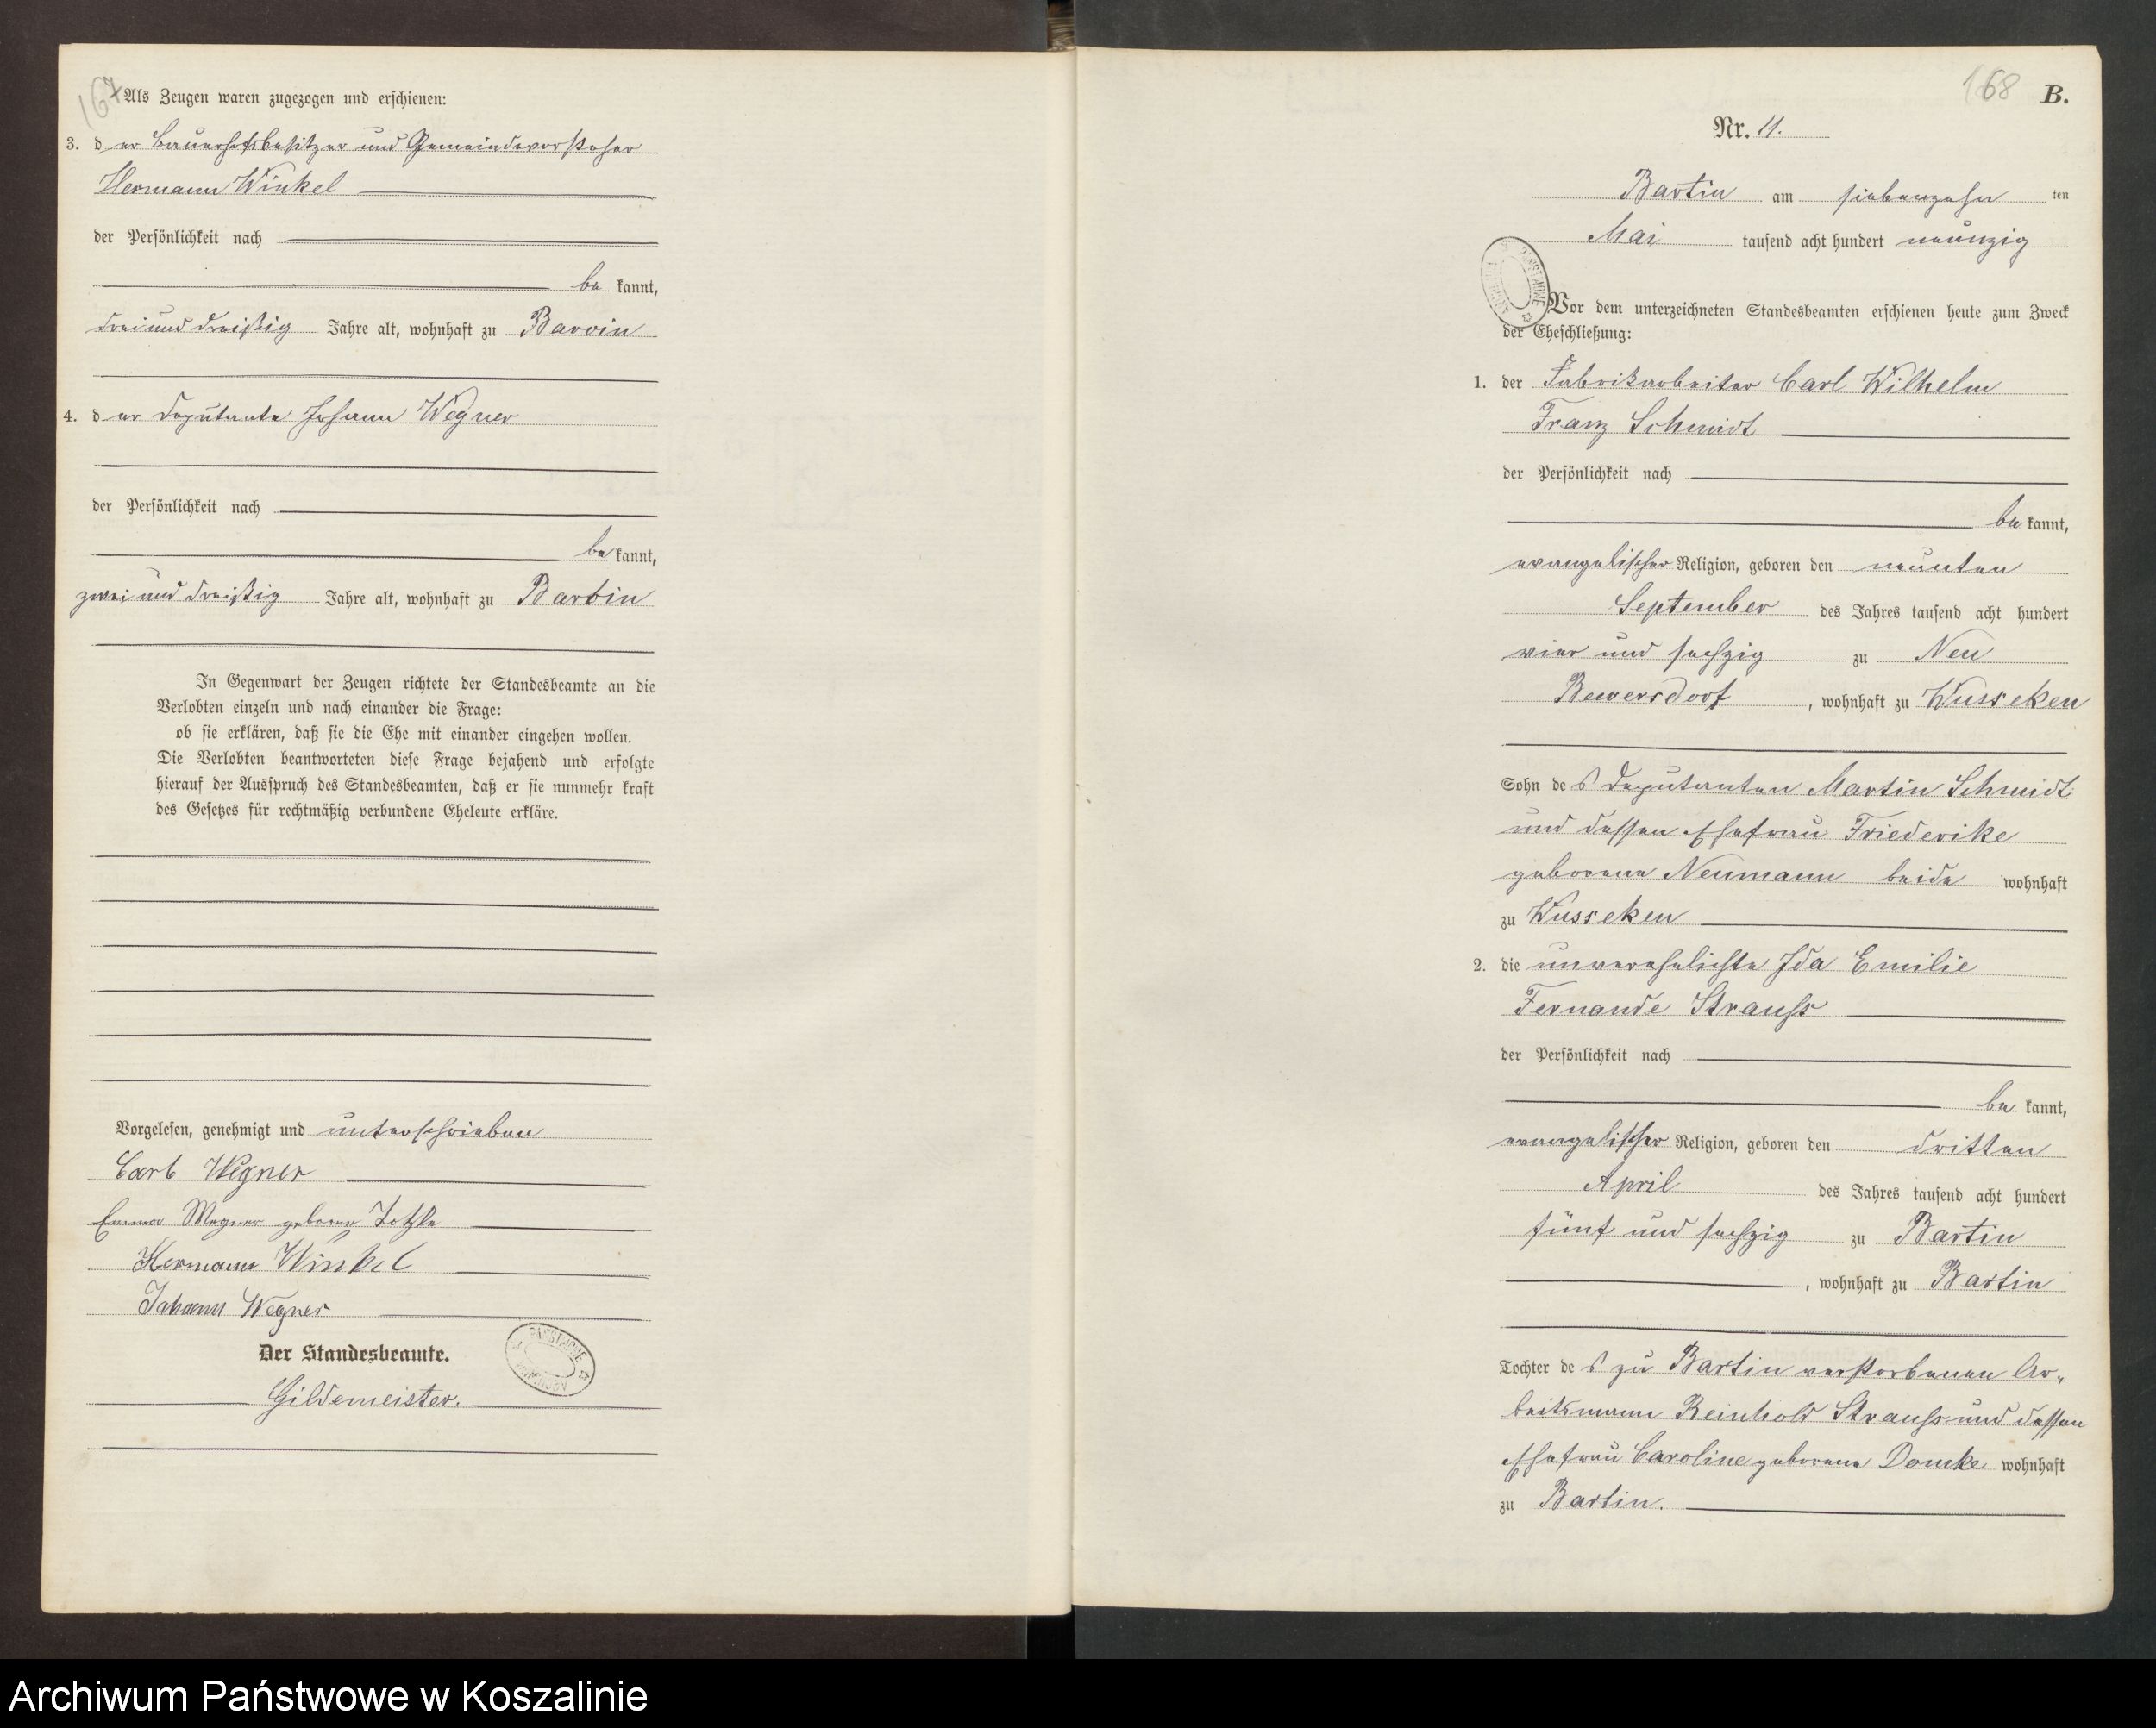 167
Als Zeugen waren zugezogen und erschienen:
3. der Bauerhofsbesitzer und Gemeindevorsteher
Hermann Winkel
der Persönlichkeit nach
bekannt,
drei und dreißig Jahre alt, wohnhaft zu Barvin
4. der Deputante Johann Wegner
der Persönlichkeit nach
bekannt,
zwei und dreißig Jahre alt, wohnhaft zu Bartin
In Gegenwart der Zeugen richtete der Standesbeamte an die
Verlobten einzeln und nach einander die Frage:
ob sie erklären, daß sie die Ehe mit einander eingehen wollen.
Die Verlobten beantworteten diese Frage bejahend und erfolgte
hierauf der Ausspruch des Standesbeamten, daß er sie nunmehr kraft
des Gesetzes für rechtmäßig verbundene Eheleute erkläre.
Vorgelesen, genehmigt und unterschrieben
Carl Wegner
Emma Wegner geborene
Hermann Winkel
Johann Wegner
Der Standesbeamte.
Gildemeister.
168
B.
Nr. 11.
Bartin am siebenzehnten
Mai tausend acht hundert neunzig
Vor dem unterzeichneten Standesbeamten erschienen heute zum Zweck
der Eheschließung:
1. der Fabrikarbeiter Carl Wilhelm
Franz Schmidt
der Persönlichkeit nach
bekannt,
evangelischer Religion, geboren den neunten
September des Jahres tausend acht hundert
vier und sechzig zu Neu
Bewersdorf, wohnhaft zu Wusseken
Sohn des Deputanten Martin Schmidt
und dessen Ehefrau Friederike
geborene Neumann beide wohnhaft
zu Wusseken
2. die unverehelichte Ida Emilie
Fernande Strauss
der Persönlichkeit nach
bekannt,
evangelischer Religion, geboren den dritten
April des Jahres tausend acht hundert
fünf und sechzig zu Bartin
, wohnhaft zu Bartin
Tochter des zu Bartin verstorbenen Ar-
beitsmann Reinhold Strauss und dessen
Ehefrau Caroline geborene Domke wohnhaft
zu Bartin.
Archiwum Państwowe w Koszalinie